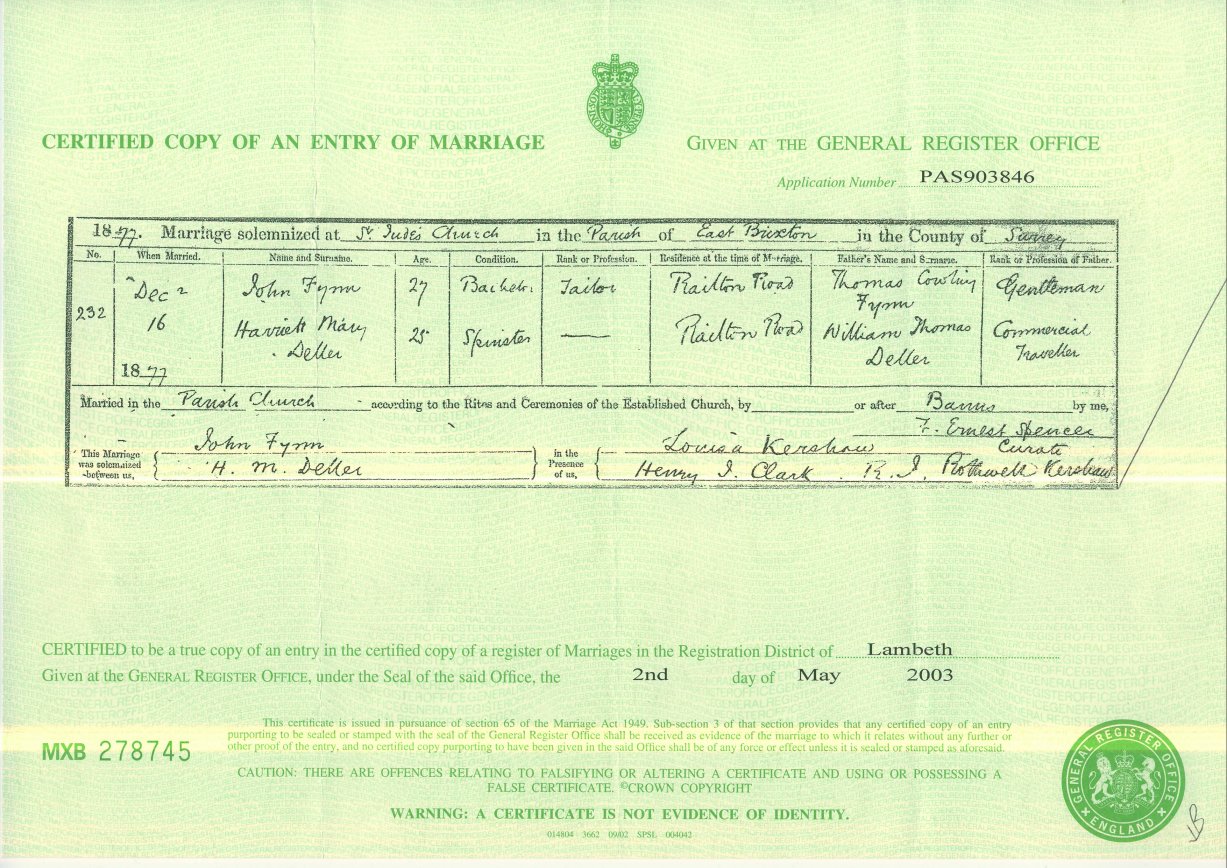 CERTIFIED COPY OF AN ENTRY OF MARRIAGE
GIVEN AT THE GENERAL REGISTER OFFICE
Application Number PAS903846
1877. Marriage solemnized at St. Jude's Church in the Parish of East Brixton in the County of Surrey
No. When Married. Name and Surname. Age. Condition. Rank or Profession. Residence at the time of Marriage. Father's Name and Surname. Rank or Profession of Father.
232
Dec r
16
1877
John Fynn 27 Bachelor Tailor Railton Road Thomas Cowling Fynn Gentleman
Harriett Mary Deller 25 Spinster — Railton Road William Thomas Deller Commercial Traveller
Married in the Parish Church according to the Rites and Ceremonies of the Established Church, by or after Banns by me,
F. Ernest Spencer
Curate
This Marriage was solemnized between us,
John Fynn
H. M. Deller
in the Presence of us,
Louisa Kershaw
Henry J. Clark . R. J. Rothwell Kershaw
CERTIFIED to be a true copy of an entry in the certified copy of a register of Marriages in the Registration District of Lambeth
Given at the GENERAL REGISTER OFFICE, under the Seal of the said Office, the 2nd day of May 2003
This certificate is issued in pursuance of section 65 of the Marriage Act 1949. Sub-section 3 of that section provides that any certified copy of an entry
purporting to be sealed or stamped with the seal of the General Register Office shall be received as evidence of the marriage to which it relates without any further or
other proof of the entry, and no certified copy purporting to have been given in the said Office shall be of any force or effect unless it is sealed or stamped as aforesaid.
MXB 278745
CAUTION: THERE ARE OFFENCES RELATING TO FALSIFYING OR ALTERING A CERTIFICATE AND USING OR POSSESSING A
FALSE CERTIFICATE. ©CROWN COPYRIGHT
WARNING: A CERTIFICATE IS NOT EVIDENCE OF IDENTITY.
014804 3662 09/02 SPSL 004042
GENERAL REGISTER OFFICE
ENGLAND